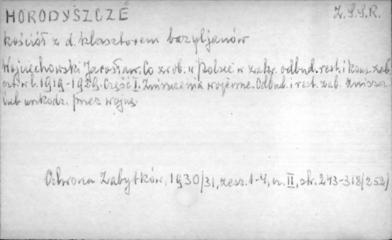 HORODYSZCZE Z.S.S.R.
kościół z d. klasztorem bazyljanów
Wojciechowski Jarosław. Co zrob. w Polsce w zakr. odbud. rest. i kons. zab.
arch. w l. 1919-1929. Część I. Zniszczenia wojenne. Odbud. i rest. zab. zniszcz.
lub uszkodz. przez wojnę.
Ochrona Zabytków, 1930/31, zesz. 1-4, cz. II, str. 243-318/252/